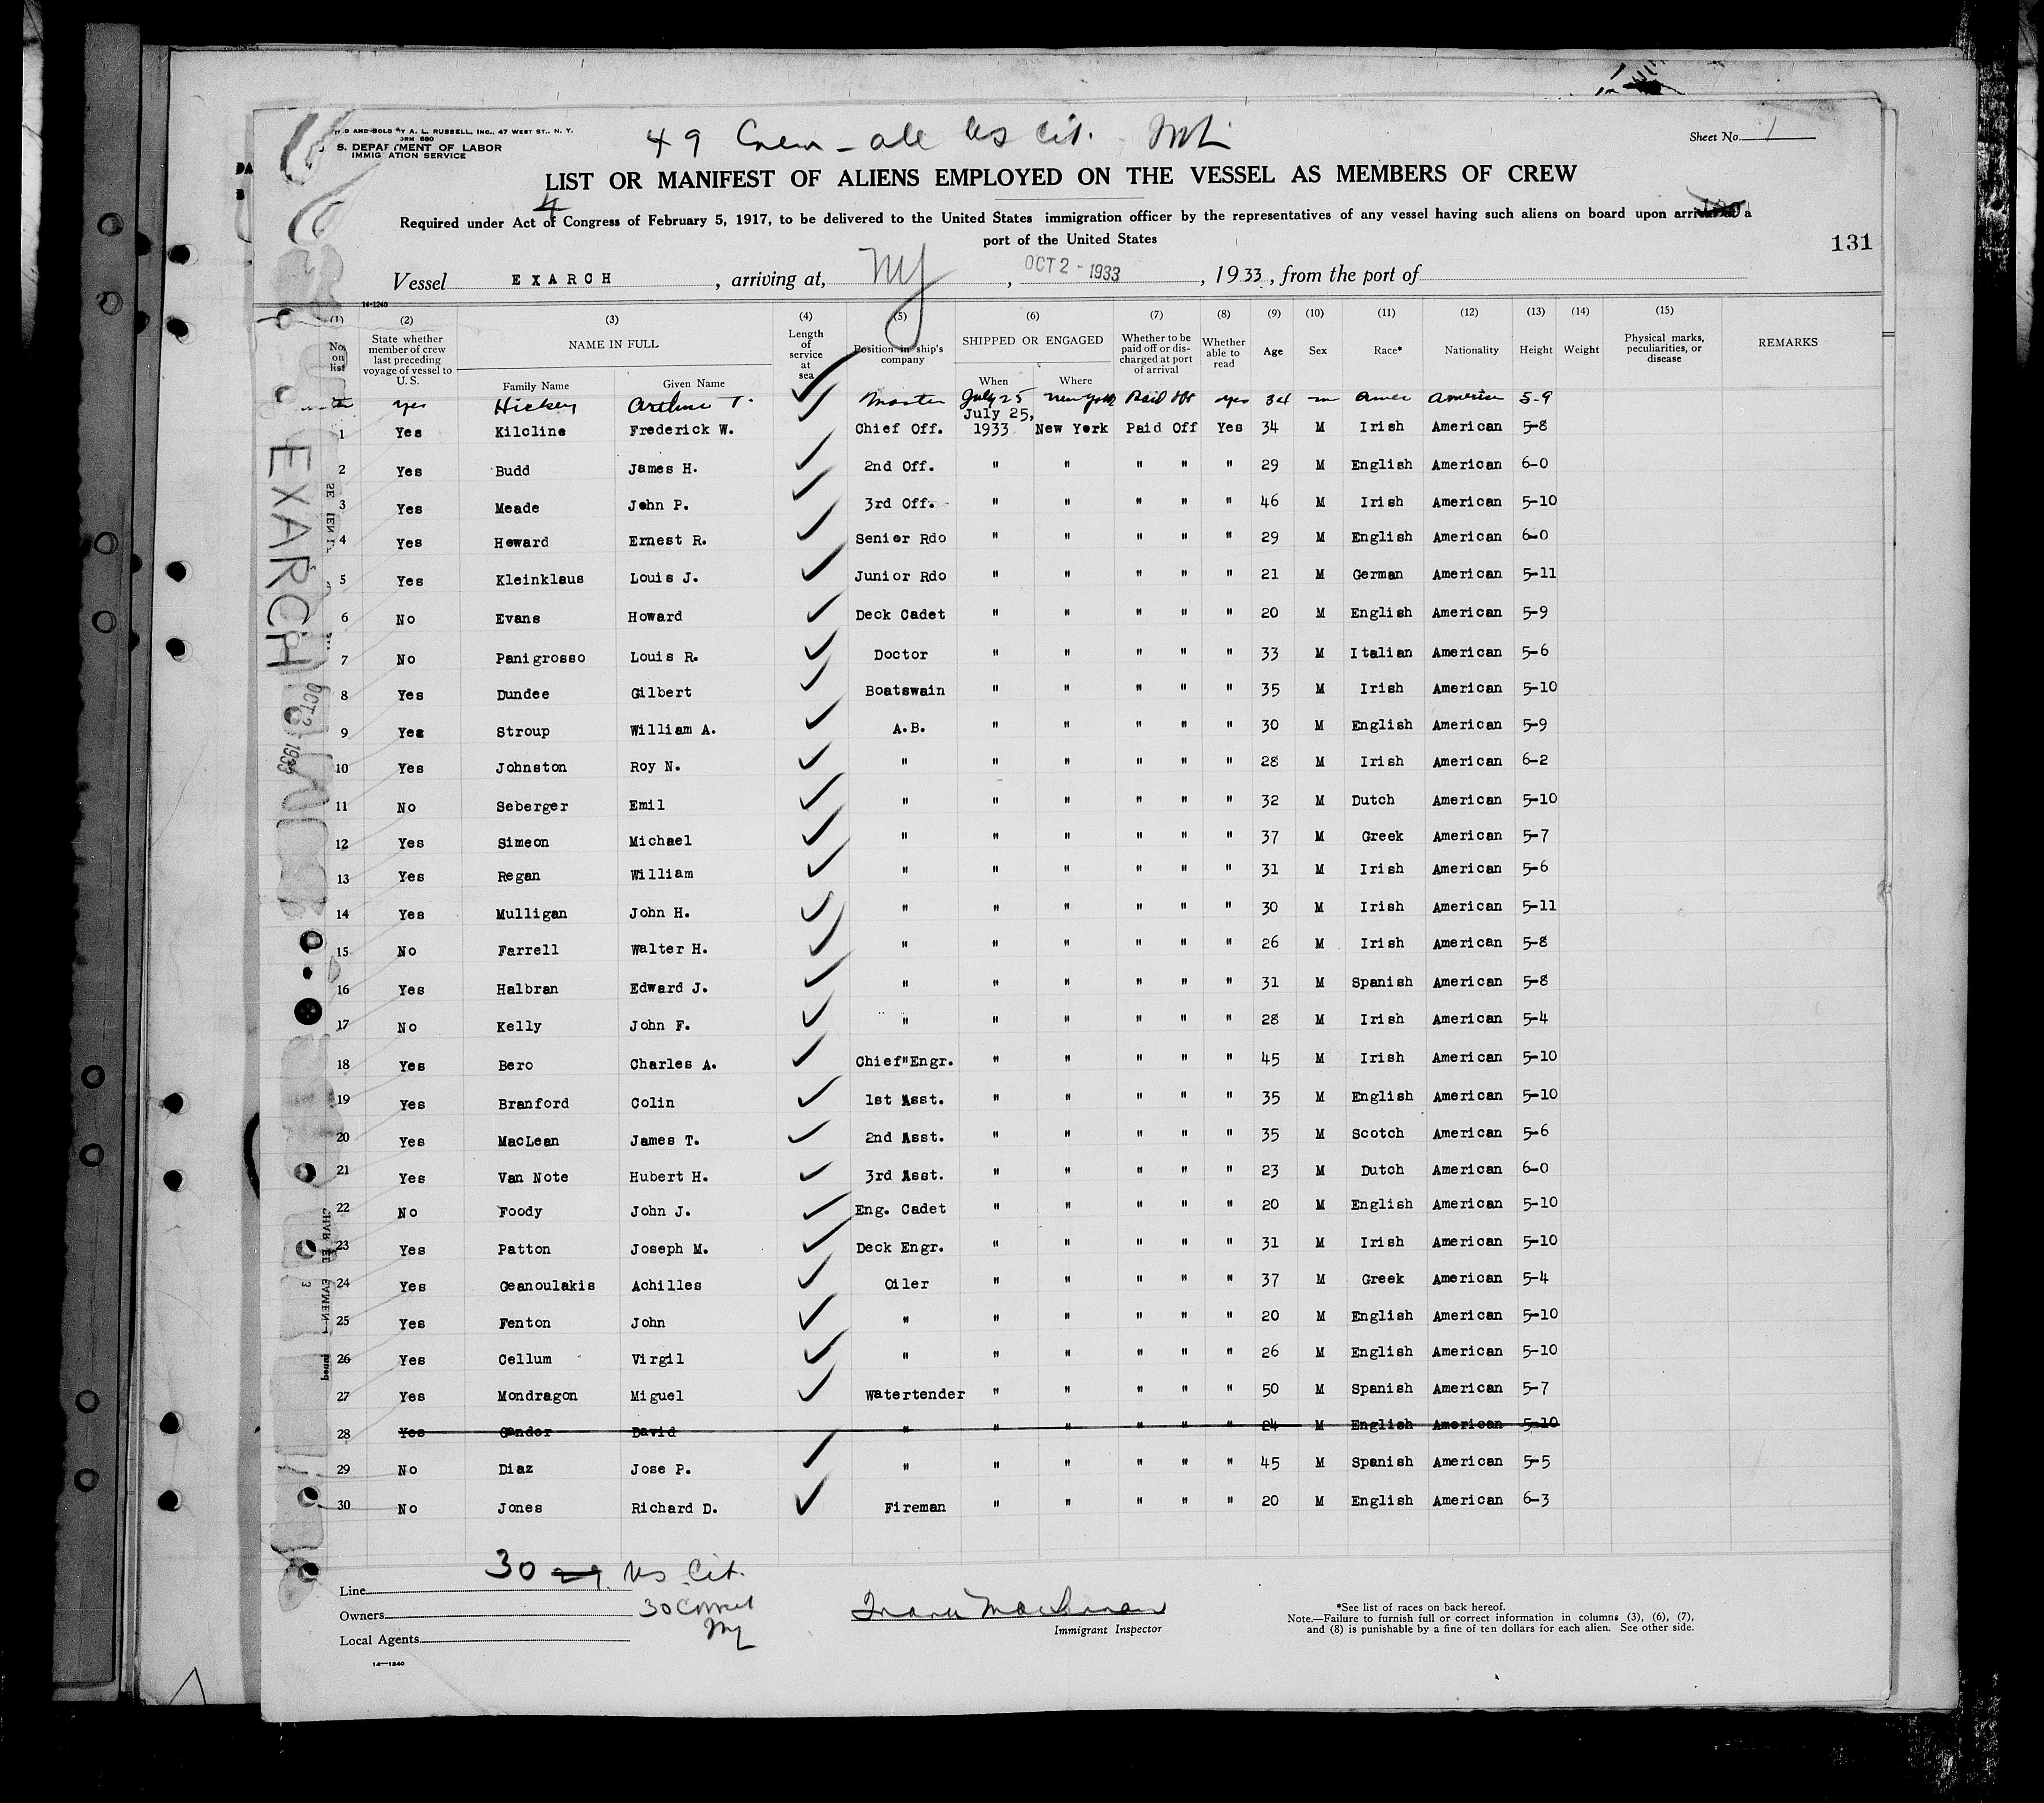 49 Crew - all US Cit.
Sheet No. 1
S. DEPARTMENT OF LABOR
IMMIGRATION SERVICE
LIST OR MANIFEST OF ALIENS EMPLOYED ON THE VESSEL AS MEMBERS OF CREW
Required under Act of Congress of February 5, 1917, to be delivered to the United States immigration officer by the representatives of any vessel having such aliens on board upon arrival at a
port of the United States
131
Vessel EXARCH , arriving at, NY , OCT 2 - 1933 , 1933 , from the port of
14-1240
(1) (2) (3) (4) (5) (6) (7) (8) (9) (10) (11) (12) (13) (14) (15)
No. on list State whether member of crew last preceding voyage of vessel to U.S. NAME IN FULL Length of service at sea Position in ship's company SHIPPED OR ENGAGED Whether to be paid off or discharged at port of arrival Whether able to read Age Sex Race* Nationality Height Weight Physical marks, peculiarities, or disease REMARKS
Family Name Given Name When Where
yes Hickey Arthur T. Master July 25 New York Paid Off yes 34 m Amer America 5-9
1 Yes Kilcline Frederick W. Chief Off. July 25, 1933 New York Paid Off Yes 34 M Irish American 5-8
2 Yes Budd James H. 2nd Off. " " " " " 29 M English American 6-0
3 Yes Meade John P. 3rd Off. " " " " " 46 M Irish American 5-10
4 Yes Howard Ernest R. Senior Rdo " " " " " 29 M English American 6-0
5 Yes Kleinklaus Louis J. Junior Rdo " " " " " 21 M German American 5-11
6 No Evans Howard Deck Cadet " " " " " 20 M English American 5-9
7 No Panigrosso Louis R. Doctor " " " " " 33 M Italian American 5-6
8 Yes Dundee Gilbert Boatswain " " " " " 35 M Irish American 5-10
9 Yes Stroup William A. A.B. " " " " " 30 M English American 5-9
10 Yes Johnston Roy N. " " " " " " 28 M Irish American 6-2
11 No Seberger Emil " " " " " " 32 M Dutch American 5-10
12 Yes Simeon Michael " " " " " " 37 M Greek American 5-7
13 Yes Regan William " " " " " " 31 M Irish American 5-6
14 Yes Mulligan John H. " " " " " " 30 M Irish American 5-11
15 No Farrell Walter H. " " " " " " 26 M Irish American 5-8
16 Yes Halbran Edward J. " " " " " " 31 M Spanish American 5-8
17 No Kelly John F. " " " " " " 28 M Irish American 5-4
18 Yes Bero Charles A. Chief"Engr. " " " " " 45 M Irish American 5-10
19 Yes Branford Colin 1st Asst. " " " " " 35 M English American 5-10
20 Yes MacLean James T. 2nd Asst. " " " " " 35 M Scotch American 5-6
21 Yes Van Note Hubert H. 3rd Asst. " " " " " 23 M Dutch American 6-0
22 No Foody John J. Eng. Cadet " " " " " 20 M English American 5-10
23 Yes Patton Joseph M. Deck Engr. " " " " " 31 M Irish American 5-10
24 Yes Geanoulakis Achilles Oiler " " " " " 37 M Greek American 5-4
25 Yes Fenton John " " " " " " 20 M English American 5-10
26 Yes Cellum Virgil " " " " " " 26 M English American 5-10
27 Yes Mondragon Miguel Watertender " " " " " 50 M Spanish American 5-7
28 Yes Gandor David " " " " " " 24 M English American 5-10
29 No Diaz Jose P. " " " " " " 45 M Spanish American 5-5
30 No Jones Richard D. Fireman " " " " " 20 M English American 6-3
EXARCH
OCT 2 - 1933
30 29 US Cit.
Line
Owners 30 Correct
Local Agents
Immigrant Inspector
*See list of races on back hereof.
Note.—Failure to furnish full or correct information in columns (3), (6), (7),
and (8) is punishable by a fine of ten dollars for each alien. See other side.
14—1240